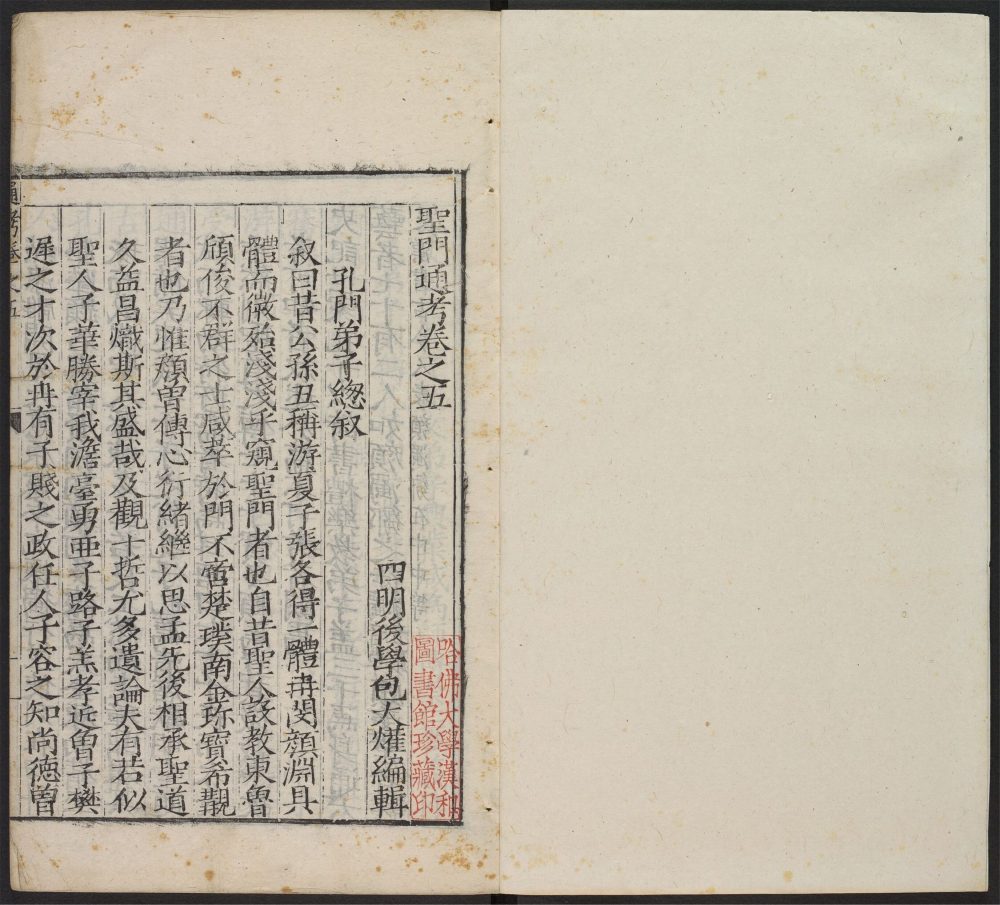 聖門通考卷之五
哈佛大學漢和
圖書館珍藏印
四明後學包大爟編輯
孔門弟子緫叙
叙曰昔公孫丑稱游夏子張各得一體冉閔顏淵具
體而微殆淺淺乎窺聖門者也自昔聖人設教東魯
頎俊不群之士咸萃於門不啻楚璞南金珎寶希覯
者也乃惟顏曾傳心衍緒繼以思孟先後相承聖道
久益昌熾斯其盛哉及觀十哲尤多遺論夫有若似
聖人子華勝宰我澹臺勇亜子路子羔孝近曾子樊
遲之才次於冉有子賤之政任人子容之知尚德曽
通考卷之五